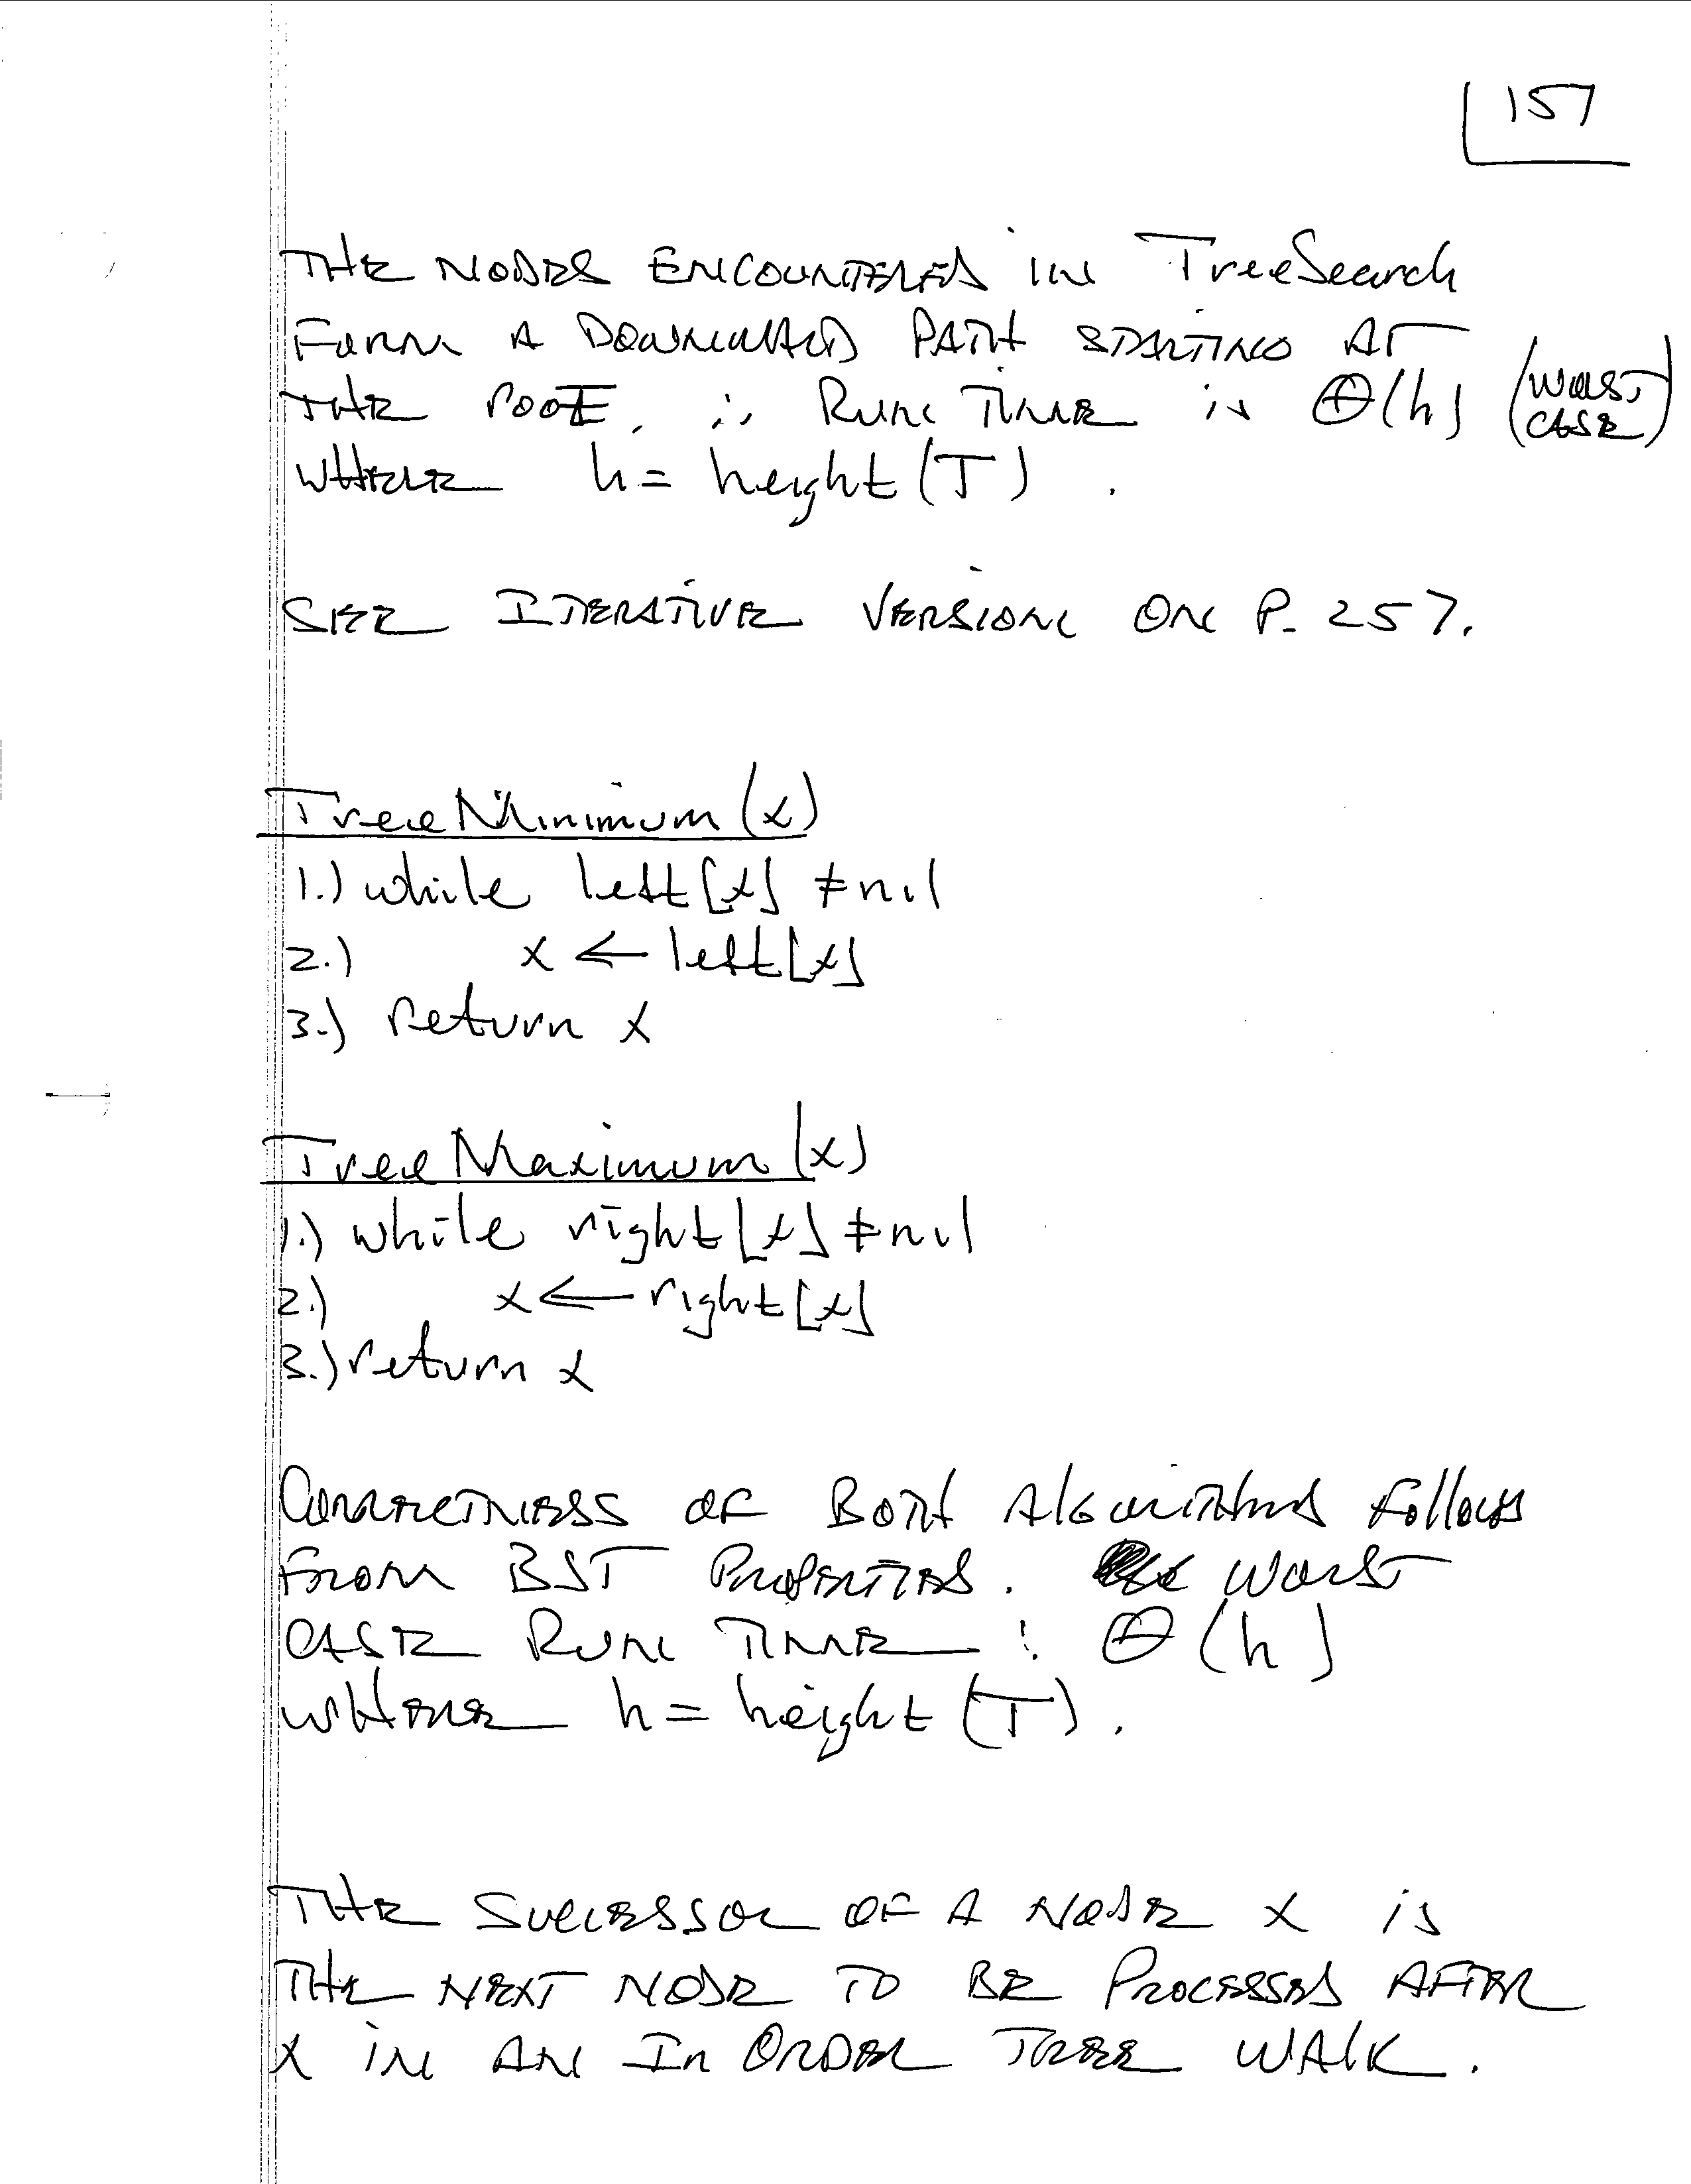 157
THE NODES ENCOUNTERED IN TreeSearch
FORM A DOWNWARD PATH STARTING AT
THE ROOT, ∴ RUN TIME is Θ(h) (WORST
CASE)
WHERE h = height(T).
SEE ITERATIVE VERSION ON P. 257.
TreeMinimum(x)
1.) while left[x] ≠ nil
2.) x ← left[x]
3.) return x
TreeMaximum(x)
1.) while right[x] ≠ nil
2.) x ← right[x]
3.) return x
CORRECTNESS OF BOTH Algorithms Follows
FROM BST PROPERTIES. WORST
CASE RUN TIME: Θ(h)
WHERE h = height(T).
THE SUCCESSOR OF A NODE x is
THE NEXT NODE TO BE PROCESSED AFTER
x IN AN In ORDER TREE WALK.